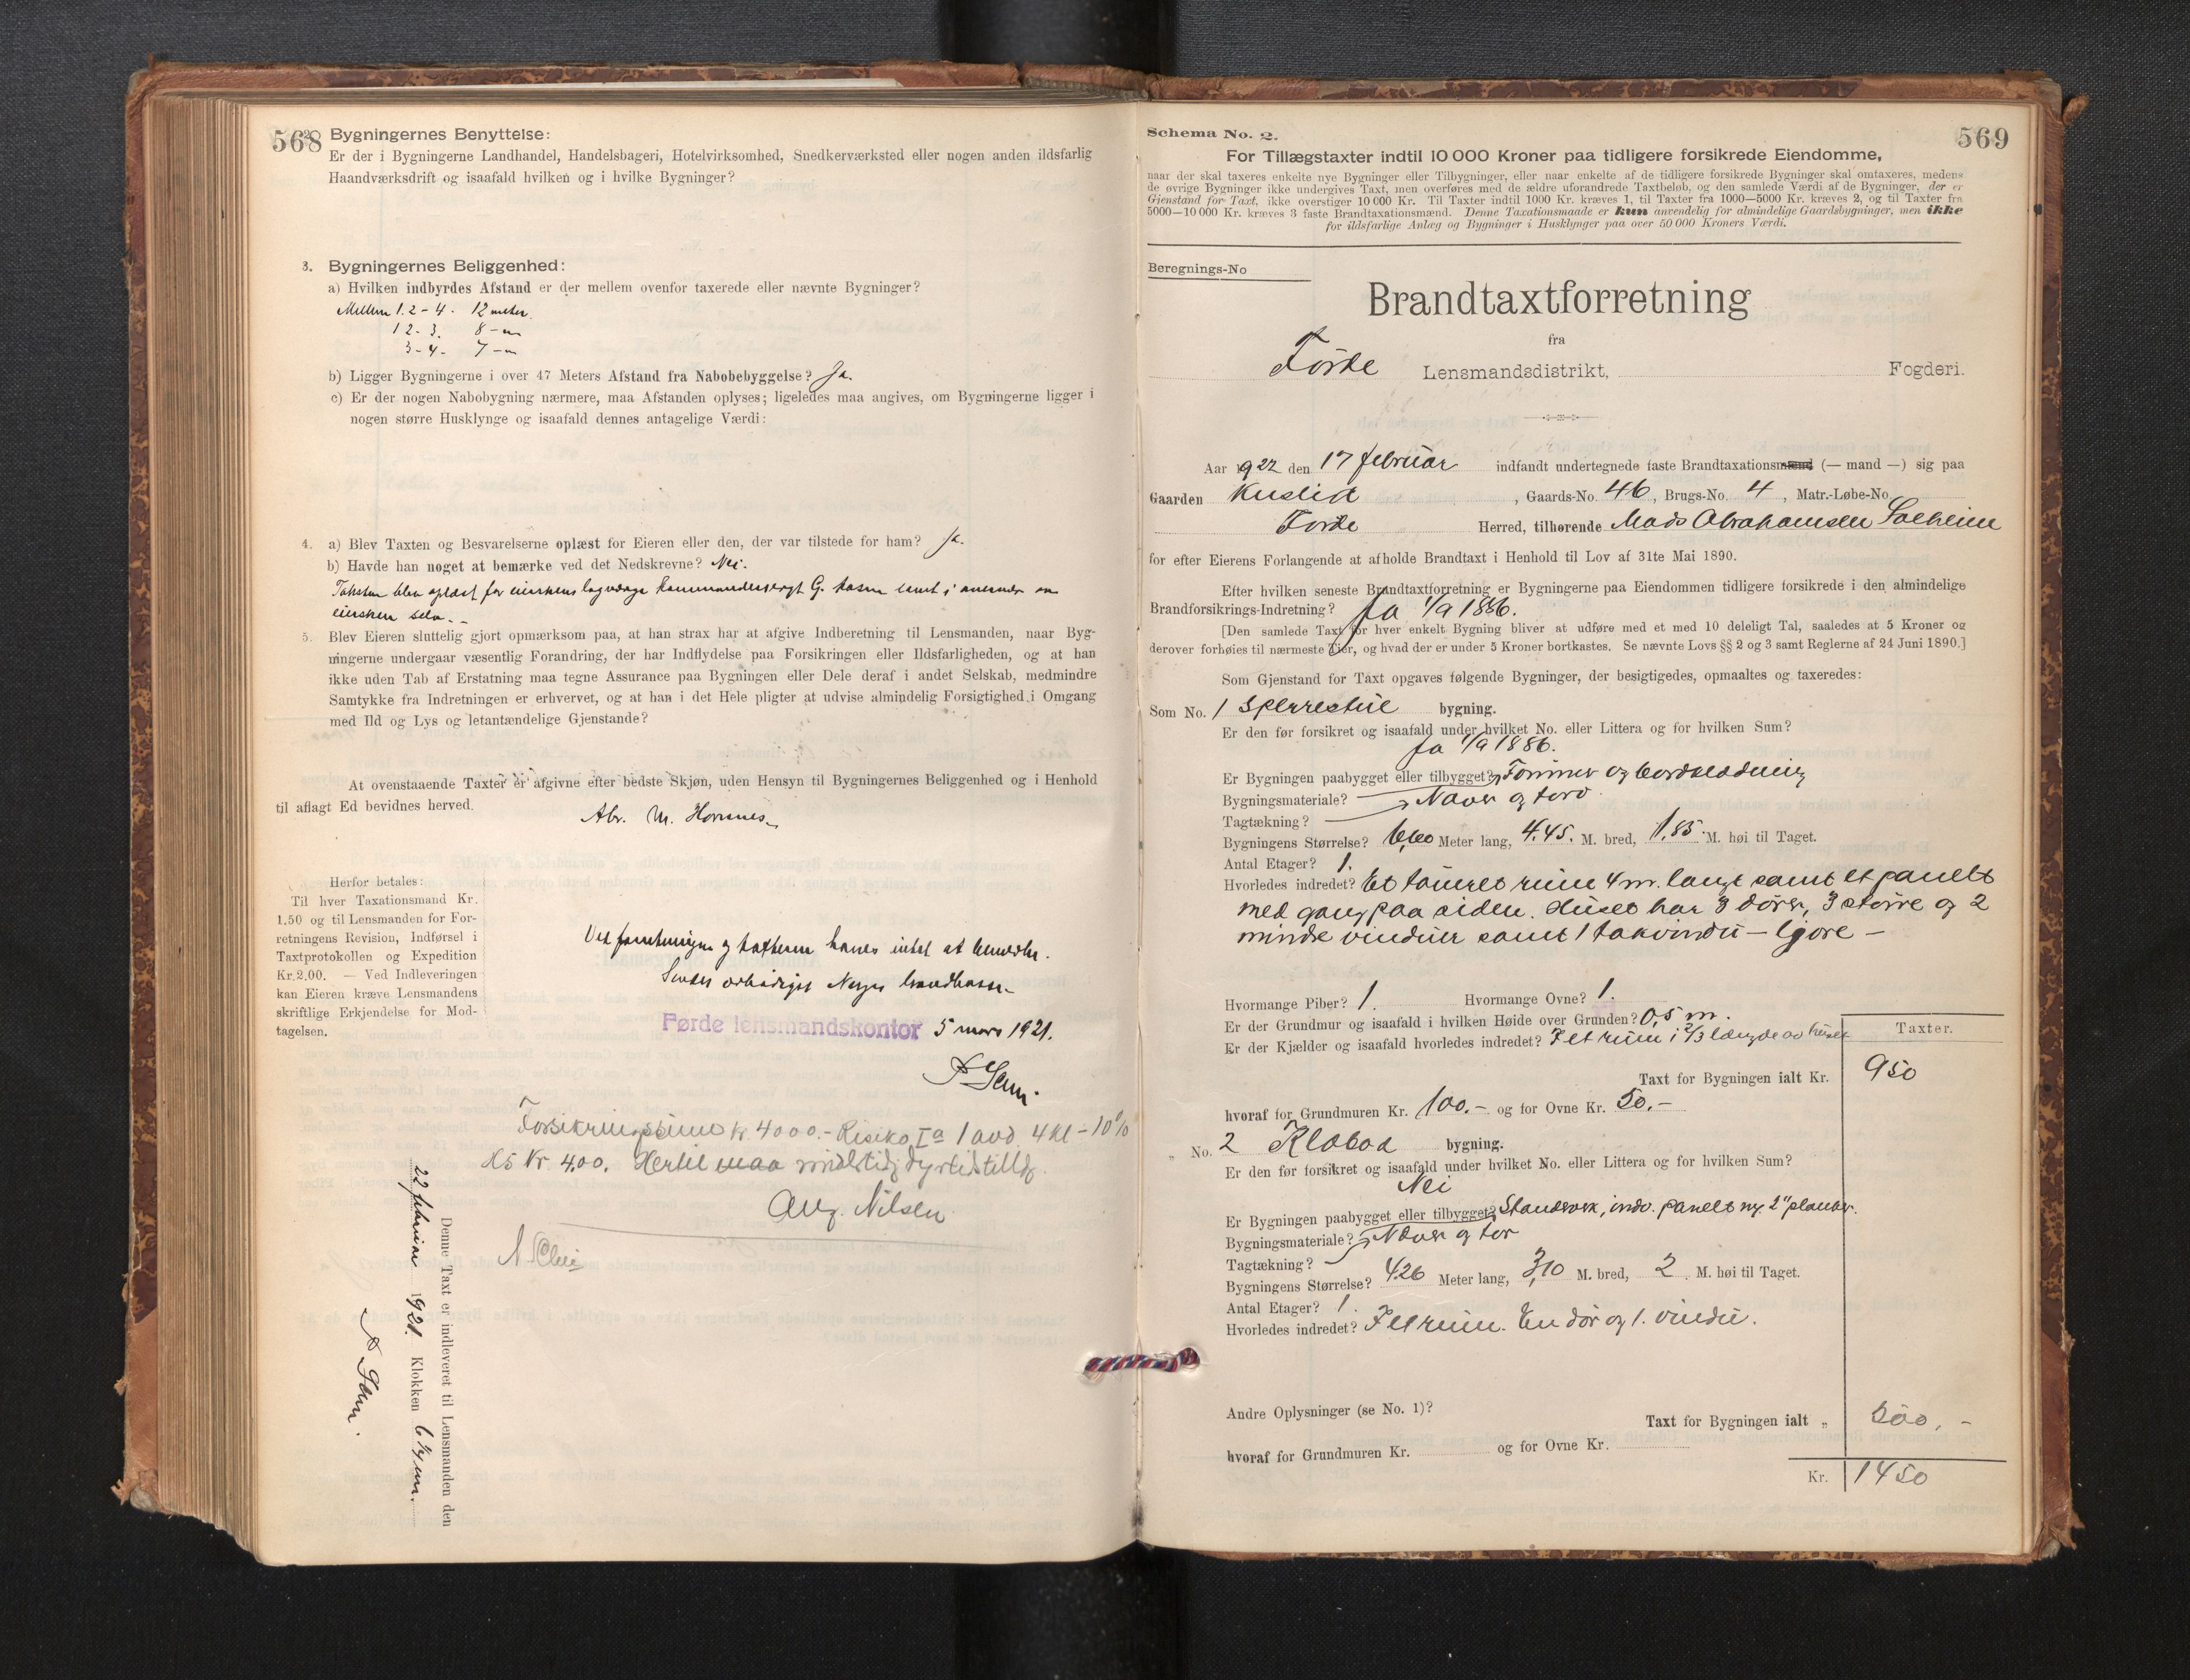 568
2. Bygningernes Benyttelse:
Er der i Bygningerne Landhandel, Handelsbageri, Hotelvirksomhed, Snedkerværksted eller nogen anden ildsfarlig
Haandværksdrift og isaafald hvilken og i hvilke Bygninger?
3. Bygningernes Beliggenhed:
a) Hvilken indbyrdes Afstand er der mellem ovenfor taxerede eller nævnte Bygninger?
Mellem 1.2-4. 12 meter.
1 2-3. 8 -"-
3-4- 7 -"-
b) Ligger Bygningerne i over 47 Meters Afstand fra Nabobebyggelse? Ja.
c) Er der nogen Nabobygning nærmere, maa Afstanden oplyses; ligeledes maa angives, om Bygningerne ligger i
nogen større Husklynge og isaafald dennes antagelige Værdi:
4. a) Blev Taxten og Besvarelserne oplæst for Eieren eller den, der var tilstede for ham? Ja.
b) Havde han noget at bemærke ved det Nedskrevne? Nei.
Taksten blev oplæst for eierskens lagverge G. samt i
eiersken selv.-
5. Blev Eieren sluttelig gjort opmærksom paa, at han strax har at afgive Indberetning til Lensmanden, naar Byg-
ningerne undergaar væsentlig Forandring, der har Indflydelse paa Forsikringen eller Ildsfarligheden, og at han
ikke uden Tab af Erstatning maa tegne Assurance paa Bygningen eller Dele deraf i andet Selskab, medmindre
Samtykke fra Indretningen er erhvervet, og at han i det Hele pligter at udvise almindelig Forsigtighed i Omgang
med Ild og Lys og letantændelige Gjenstande?
At ovenstaaende Taxter er afgivne efter bedste Skjøn, uden Hensyn til Bygningernes Beliggenhed og i Henhold
til aflagt Ed bevidnes herved.
Abr. M. Hornnes
Herfor betales:
Til hver Taxationsmand Kr.
1.50 og til Lensmanden for For-
retningens Revision, Indførsel i
Taxtprotokollen og Expedition
Kr. 2.00. — Ved Indleveringen
kan Eieren kræve Lensmandens
skriftlige Erkjendelse for Mod-
tagelsen.
Ved forretningen og taksterne haves intet at bemerke.
Sendes Norges brandkasse.-
Førde lensmandskontor 5 mars 1921.
Forsikringssum kr 4000.- Risiko Ia 1 avd. 4 kl - 10%
H5 Kr 4.00. Hertil midlertidig dyrtidstillæg.
Aug. Nilsen
Denne Taxt er indleveret til Lensmanden den
22 februar 1921. Klokken 6
Schema No. 2.
569
For Tillægstaxter indtil 10 000 Kroner paa tidligere forsikrede Eiendomme,
naar der skal taxeres enkelte nye Bygninger eller Tilbygninger, eller naar enkelte af de tidligere forsikrede Bygninger skal omtaxeres, medens
de øvrige Bygninger ikke undergives Taxt, men overføres med de ældre uforandrede Taxtbeløb, og den samlede Værdi af de Bygninger, der er
Gjenstand for Taxt, ikke overstiger 10 000 Kr. Til Taxter indtil 1000 Kr. kræves 1, til Taxter fra 1000—5000 Kr. kræves 2, og til Taxter fra
5000—10 000 Kr. kræves 3 faste Brandtaxationsmænd. Denne Taxationsmaade er kun anvendelig for almindelige Gaardsbygninger, men ikke
for ildsfarlige Anlæg og Bygninger i Husklynger paa over 50 000 Kroners Værdi.
Beregnings-No
Brandtaxtforretning
fra
Førde Lensmandsdistrikt, Fogderi.
Aar 1922 den 17 februar indfandt undertegnede faste Brandtaxationsmænd (— mand —) sig paa
Gaarden Kuslid, Gaards-No. 46, Brugs-No. 4, Matr.-Løbe-No
Førde Herred, tilhørende Mads Abrahamsen Solheim
for efter Eierens Forlangende at afholde Brandtaxt i Henhold til Lov af 31te Mai 1890.
Efter hvilken seneste Brandtaxtforretning er Bygningerne paa Eiendommen tidligere forsikrede i den almindelige
Brandforsikrings-Indretning? Ja 1/9 1886.
[Den samlede Taxt for hver enkelt Bygning bliver at udføre med et med 10 deleligt Tal, saaledes at 5 Kroner og
derover forhøies til nærmeste Tier, og hvad der er under 5 Kroner bortkastes. Se nævnte Lovs §§ 2 og 3 samt Reglerne af 24 Juni 1890.]
Som Gjenstand for Taxt opgaves følgende Bygninger, der besigtigedes, opmaaltes og taxeredes:
Som No. 1 Sperrestue bygning.
Er den før forsikret og isaafald under hvilket No. eller Littera og for hvilken Sum?
Ja 1/9 1886.
Er Bygningen paabygget eller tilbygget? Tømmer og bordklædning
Bygningsmateriale? Næver og torv
Tagtækning?
Bygningens Størrelse? 6,60 Meter lang, 4.45. M. bred, 1,85. M. høi til Taget.
Antal Etager? 1.
Hvorledes indredet? Et tømret rum 4 m. langt samt et panelt
med gang paa siden. Huset har 3 dører, 3 større og 2
mindre vinduer samt 1 takvindu – 1 gøre –
Hvormange Piber? 1. Hvormange Ovne? 1.
Er der Grundmur og isaafald i hvilken Høide over Grunden? 0,5 m.
Er der Kjælder og isaafald hvorledes indredet? Jet rum i 2/3 længde av huset
Taxter.
Taxt for Bygningen ialt Kr. 950
hvoraf for Grundmuren Kr. 100.- og for Ovne Kr. 50.-
„ No. 2 Kløbod bygning.
Er den før forsikret og isaafald under hvilket No. eller Littera og for hvilken Sum?
Nei
Er Bygningen paabygget eller tilbygget? Standverk, indv. panelt m. 2" planker.
Bygningsmateriale? Næver og tor
Tagtækning?
Bygningens Størrelse? 4.26 Meter lang, 3,10 M. bred, 2 M. høi til Taget.
Antal Etager? 1.
Hvorledes indredet? Jet rum. En dør og 1. vindu.
Andre Oplysninger (se No. 1)?
Taxt for Bygningen ialt „ 500,-
hvoraf for Grundmuren Kr. og for Ovne Kr.
Kr. 1450